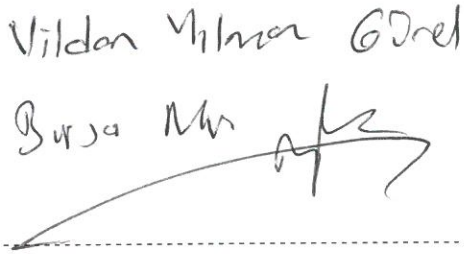 Vildan Yılmaz Gürel
Bursa